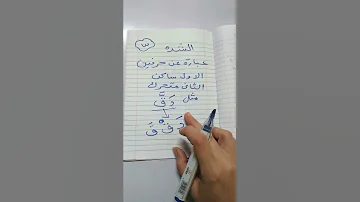 الشده
عبارة عن حرفين
الاول ساكن
الثاني متحرك
مثل دَقَّ